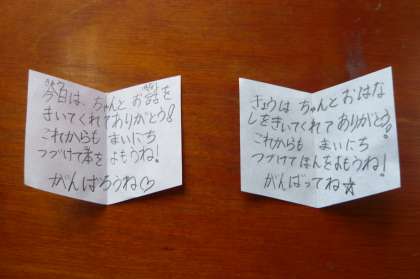 今日は、ちゃんとお話を
きいてくれてありがとう!
これからも まいにち
つづけて本をよもうね!
がんばろうね♡
きょうは ちゃんと おはな
しをきいてくれて ありがとう!
これからも まいにち
つづけてほんをよもうね!
がんばってね☆